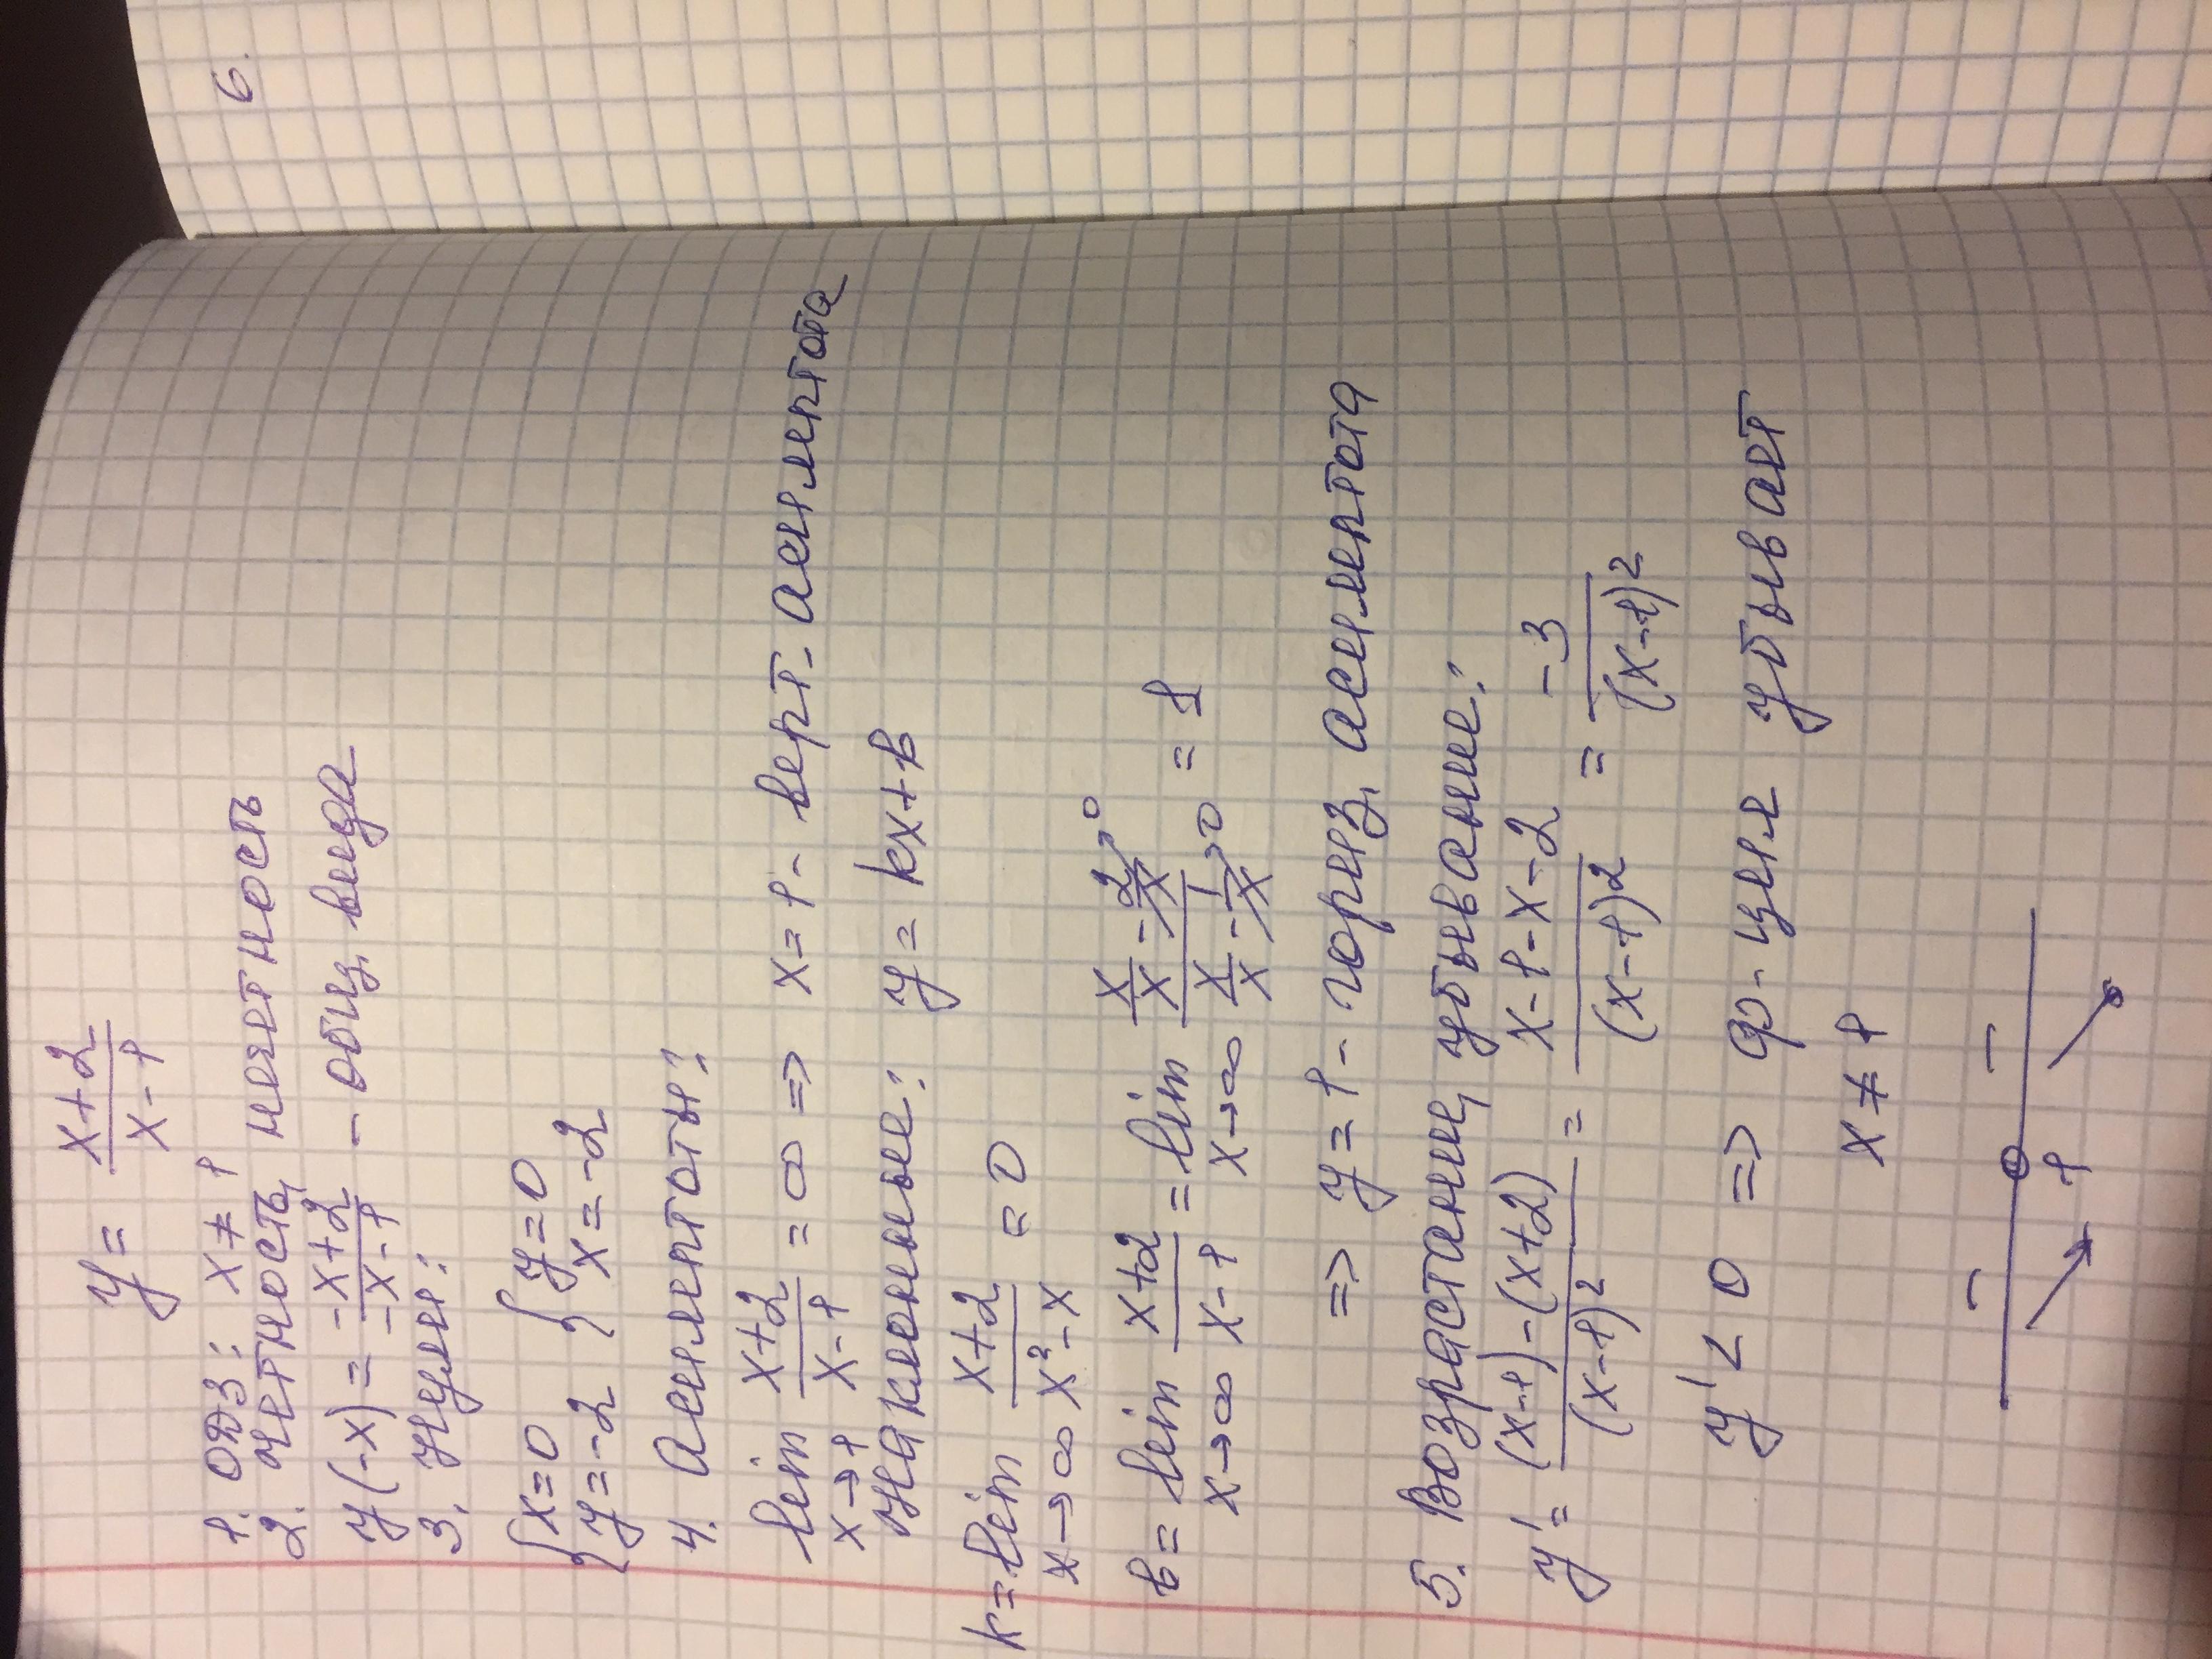 y = (x+2)/(x-1)
1. ОДЗ: x ≠ 1
2. четность, нечетность
y(-x) = (-x+2)/(-x-1) - общ. вида
3. Нули:
{x=0 {y=0
{y=-2 {x=-2
4. Асимптоты:
lim x→1 (x+2)/(x-1) = ∞ => x=1 - верт. асимптота
Наклонные: y = kx+b
k = lim x→∞ (x+2)/(x²-x) = 0
b = lim x→∞ (x+2)/(x-1) = lim x→∞ (x/x - 2/x→0)/(x/x - 1/x→0) = 1
=> y=1 - гориз. асимптота
5. Возрастание, убывание:
y' = ((x-1)-(x+2))/(x-1)² = (x-1-x-2)/(x-1)² = -3/(x-1)²
y' < 0 => ф-ция убывает
x ≠ 1
- -
1
6.